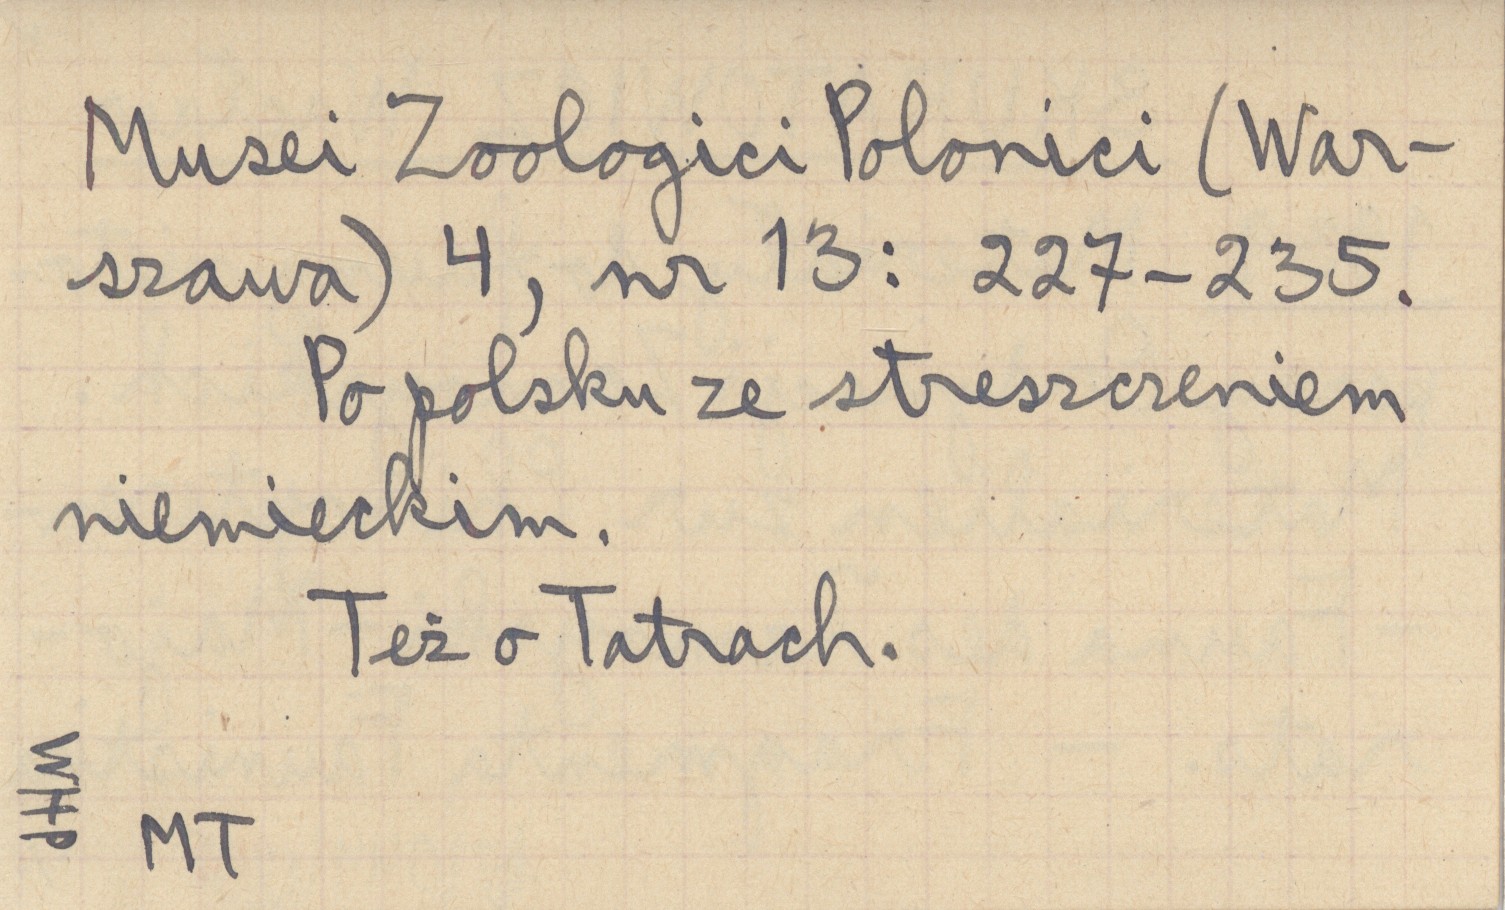 Musei Zoologici Polonici (War-
szawa) 4, nr 13: 227-235.
Po polsku ze streszczeniem
niemieckim.
Też o Tatrach.
WHP
MT